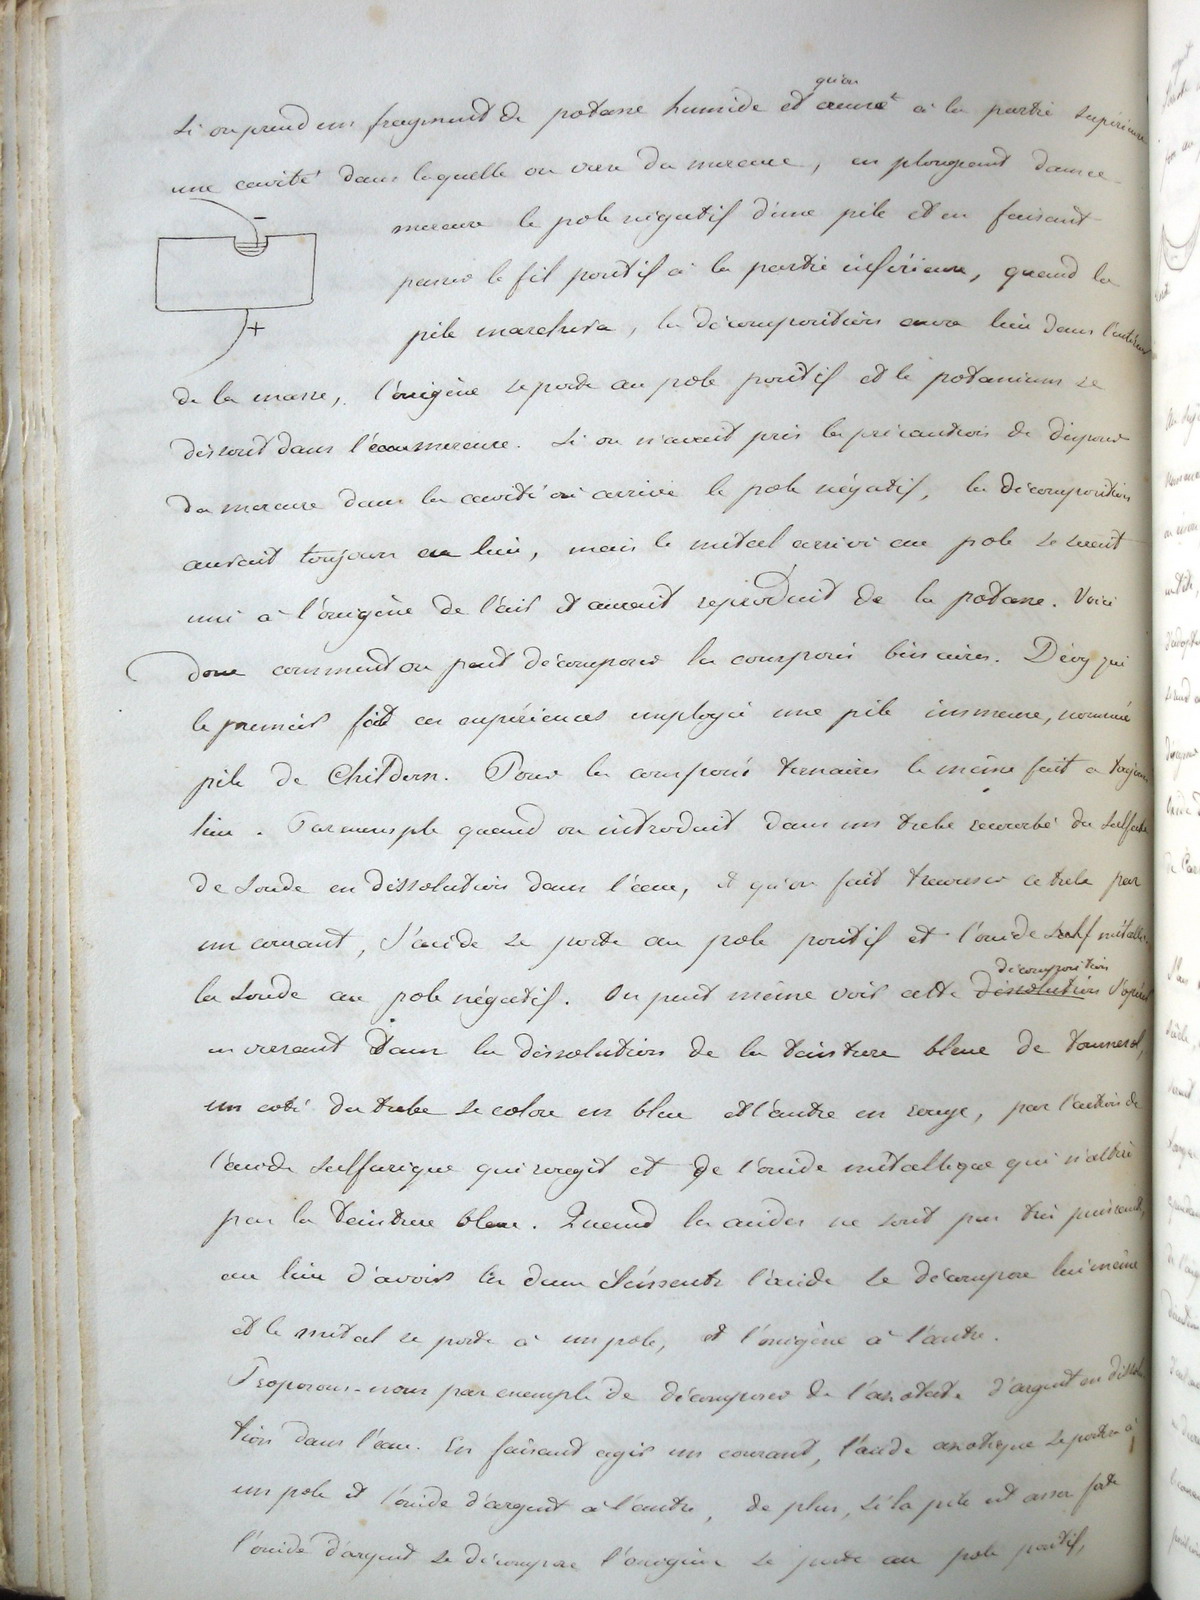 Si on prend un fragment de potasse humide et qu'on creuse à la partie supérieure
une cavité dans laquelle on verse du mercure, en plongeant dans ce
mercure le pole négatif d'une pile et en faisant
passer le fil positif à la partie inférieure, quand la
pile marchera, la décomposition aura lieu dans l'intérieur
de la masse, l'oxigène se porte au pole positif et le potassium se
dissout dans le mercure. Si on n'avait pris la précaution de disposer
du mercure dans la cavité où arrive le pole négatif, la décomposition
aurait toujours eu lieu, mais le métal arrivé au pole se serait
uni à l'oxigène de l'air et aurait reproduit de la potasse. Voici
donc comment on peut décomposer les composés binaires. Dévy qui
le premier fit ces expériences employa une pile immense, nommée
pile de Childern. Pour les composés ternaires le même fait a toujours
lieu. Par exemple quand on introduit dans un tube recourbé du sulfate
de soude en dissolution dans l'eau, et qu'on fait traverser ce tube par
un courant, l'acide se porte au pole positif et l'oxide métalli
la soude au pole négatif. On peut même voir cette dissolution décomposition s'opérer
en versant dans la dissolution de la teinture bleue de tournesol,
un coté du tube se colore en bleu et l'autre en rouge, par l'action de
l'acide sulfurique qui rougit et de l'oxide métallique qui n'altère
pas la teinture bleue. Quand les acides ne sont pas très puissants,
au lieu d'avoir les deux éléments l'acide se décompose lui même
et le métal se porte à un pole, et l'oxigène à l'autre.
Proposons-nous par exemple de décomposer de l'azotate d'argent en dissolu
tion dans l'eau. En faisant agir un courant, l'acide azotique se portera à
un pole et l'oxide d'argent à l'autre, de plus, si la pile est assez forte
l'oxide d'argent se décompose l'oxigène se porte au pole positif,